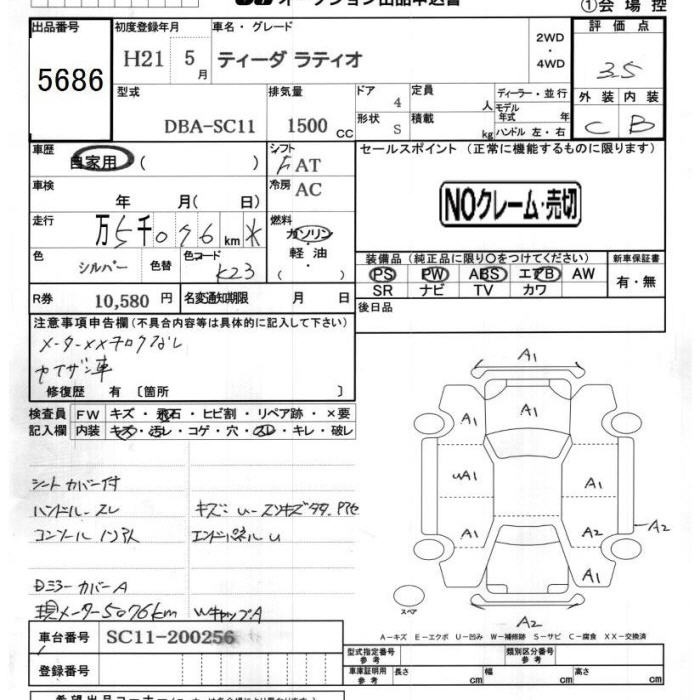 オークション出品申込書
①会場控
出品番号
5686
初度登録年月
H21 5月
車名・グレード
ティーダ ラティオ
2WD
・
4WD
評価点
3.5
外装 内装
C B
型式
DBA-SC11
排気量
1500 CC
ドア
4
形状
S
定員
人
積載
kg
ディーラー・並行
モデル年式 年
ハンドル 左・右
車歴
自家用 ( )
シフト
F AT
車検
年 月( 日)
冷房
AC
走行
万5千076km ※
燃料
ガソリン
・
軽油
( )
色
シルバー
色替
色コード
K23
R券
10,580 円
名変通知期限 月 日
セールスポイント (正常に機能するものに限ります)
NOクレーム・売切
装備品 (純正品に限り○をつけてください)
PS PW ABS エアB AW
SR ナビ TV カワ
新車保証書
有・無
後日品
注意事項申告欄(不具合内容等は具体的に記入して下さい)
メーターXXキロクなし
修復歴 有 〔箇所 〕
検査員
記入欄
FW キズ・飛石・ヒビ割・リペア跡・×要
内装 キズ・汚レ・コゲ・穴・スレ・キレ・破レ
シートカバー付
ハンドルスレ
エンドパネルU
DミラーカバーA
現メーター5076km WキャップA
A1
A1
UA1
A1
A1
A1
A2
A2
A1
A2
スペア
A－キズ E－エクボ U－凹み W－補修跡 S－サビ C－腐食 XX－交換済
車台番号
SC11-200256
登録番号
型式指定番号
参考
類別区分番号
参考
車庫証明用
参考
長さ cm 幅 cm 高さ cm